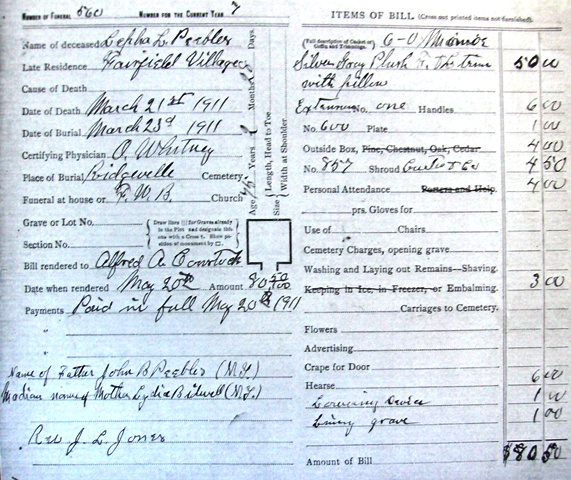 NUMBER OF FUNERAL 560 NUMBER FOR THE CURRENT YEAR 7
Name of deceased Lepha L. Peebler
Late Residence Fairfield Village
Cause of Death
Date of Death March 21st 1911
Date of Burial March 23d 1911
Certifying Physician O. Whitney
Place of Burial Ridgeville Cemetery
Funeral at house or F. W. B. Church
Age Years Months Days
Size Length, Head to Toe
Width at Shoulder
Grave or Lot No.
Section No.
Draw lines for Graves already in the Plot and designate this one with a Cross †. Show position of monument by □.
Bill rendered to Alfred A.
Date when rendered May 20th Amount 80.50/100
Payments Paid in full May 20th 1911
Name of Father John B Peebler (N.Y.)
Madian name of Mother Lydia Bidwell (N.Y.)
Rev J. L. Jones
ITEMS OF BILL (Cross out printed name not furnished).
(Full description of Casket or Coffin and Trimmings.) 6-0 Monroe
Silver Gray Plush trim 50 00
with pillow
Extension No. one Handles 6 00
No. 600 Plate 1 00
Outside Box, Pine, Chestnut, Oak, Cedar 4 00
No. 857 Shroud 4 50
Personal Attendance Porters and Help 4 00
prs. Gloves for
Use of Chairs
Cemetery Charges, opening grave
Washing and Laying out Remains—Shaving
Keeping in Ice, in Freezer, or Embalming. 3 00
Carriages to Cemetery.
Flowers
Advertising
Crape for Door
Hearse 6 00
Lowering Device 1 00
Lining grave 1 00
Amount of Bill $80 50